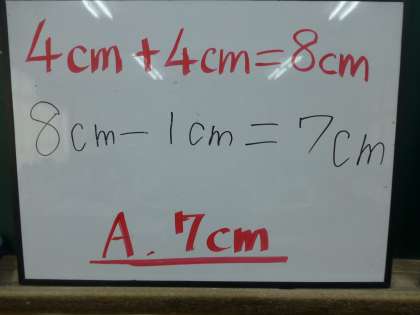 4cm+4cm=8cm
8cm-1cm=7cm
A. 7cm